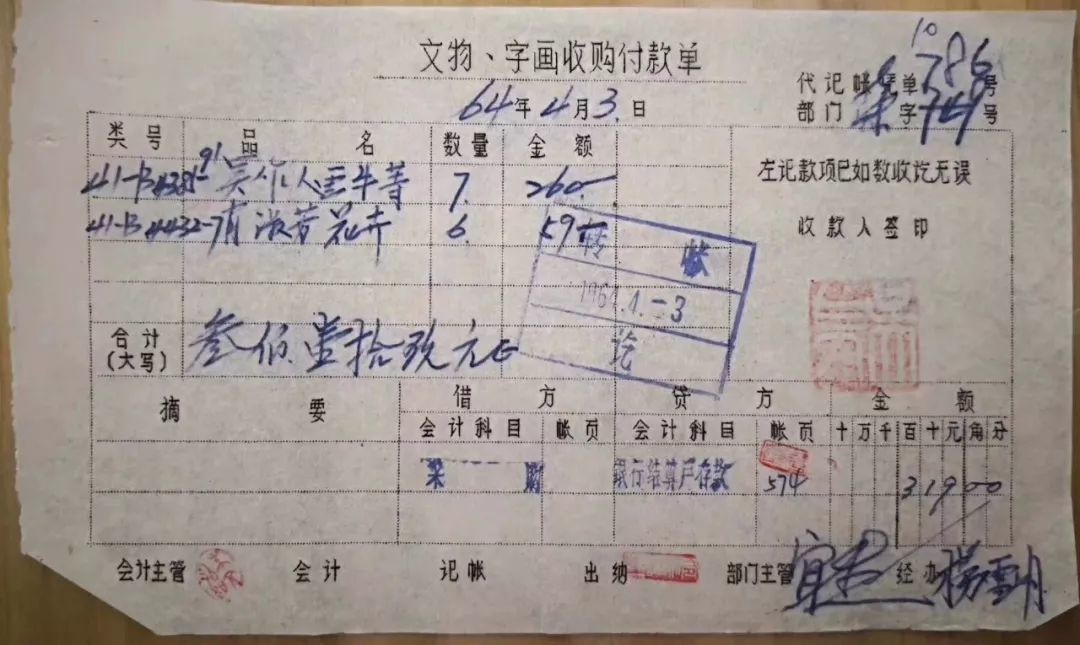 文物、字画收购付款单
代记帐凭单 10786 号
64年4月3日
部门 采 字 号
类号 品名 数量 金额
吴作人 牛等 7. 260-
左记款项已如数收讫无误
花卉 6. 59-
收款人签印
转帐
1964.4.-3
讫
合计(大写) 叁佰壹拾玖元正
摘要 借方 贷方 金额
会计科目 帐页 会计科目 帐页 十万千百十元角分
采购 银行结算户存款 574 31900
会计主管 会计 记帐 出纳 部门主管 经办